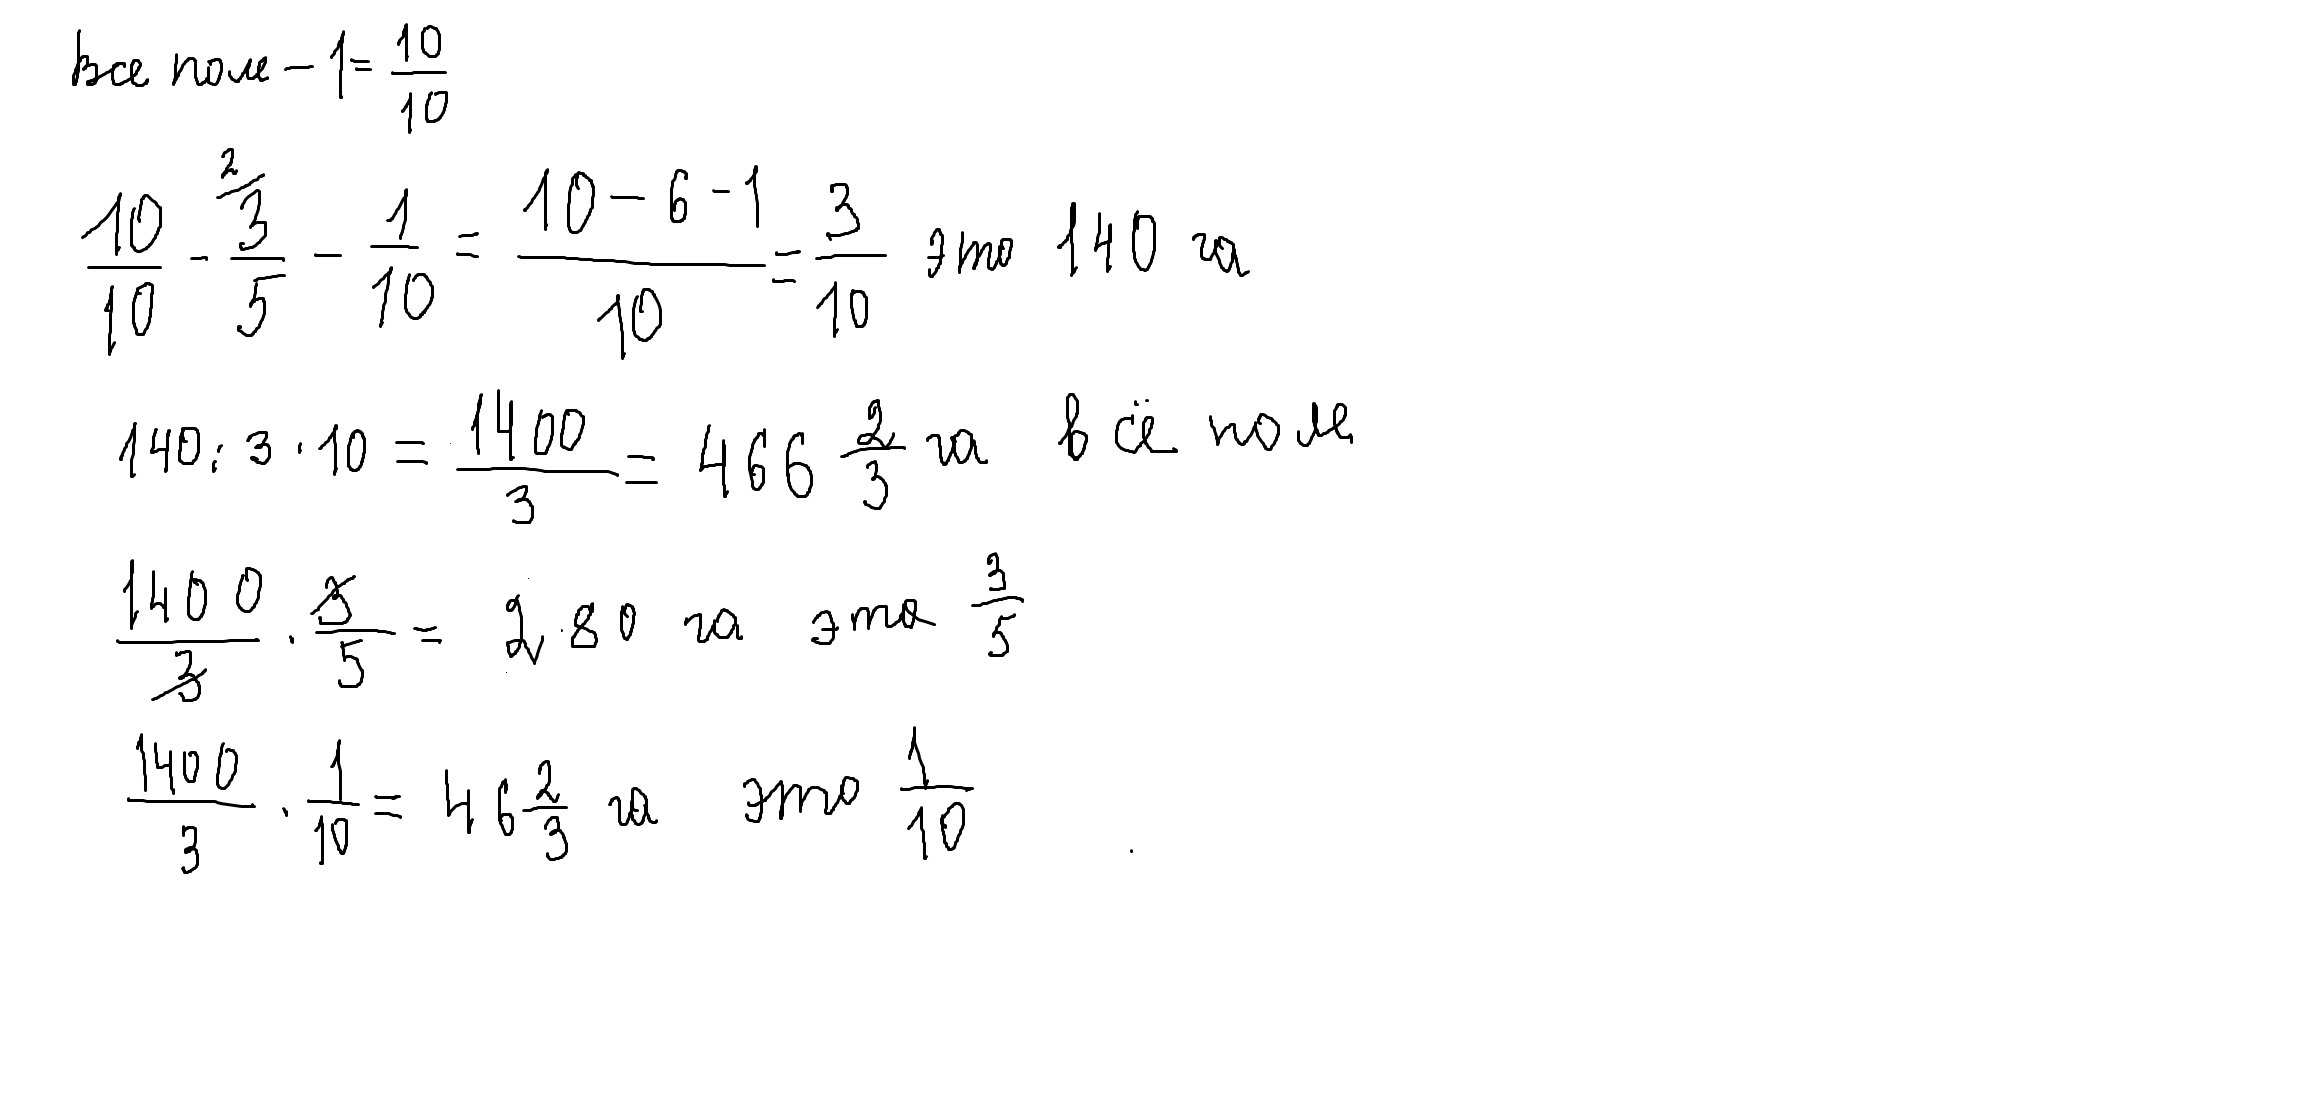 все поле – 1 = 10/10
10/10 - 3/5 (2) – 1/10 = (10 – 6 - 1)/10 = 3/10 это 140 га
140 : 3 · 10 = 1400/3 = 466 2/3 га всё поле
1400/3 · 3/5 = 280 га это 3/5
1400/3 · 1/10 = 46 2/3 га это 1/10